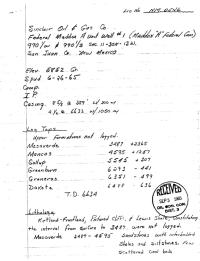 Sinclair Oil & Gas Co
Federal Madden A Unit Well #1 (Madden "A" Federal Com)
990/W & 990/S Sec 11-30N-12W.
San Juan Co. New Mexico
Elev. 5882 Gr
Spud 6-26-65
Comp.
I P
Casing. 8 5/8 @
4 1/2 @ 6633
Log Tops
Upper Formations not logged.
Mesaverde 3487 +2365
Mancos 4595 +1257
Gallup 5545 + 307
Greenhorn 6293 - 441
Graneros 6351 - 499
Dakota 636
T.D. 6634
RECEIVED
SEP 3 1965
OIL CON. COM.
DIST. 3
Lithology
Kirtland-Fruitland, Pictured Cliffs, & Lewis Shale, constituting
the interval from surface to 3487, were not logged.
Mesaverde 3487 - 4595 Sandstones with interbedded
Shales and siltstones. Few
scattered Coal beds